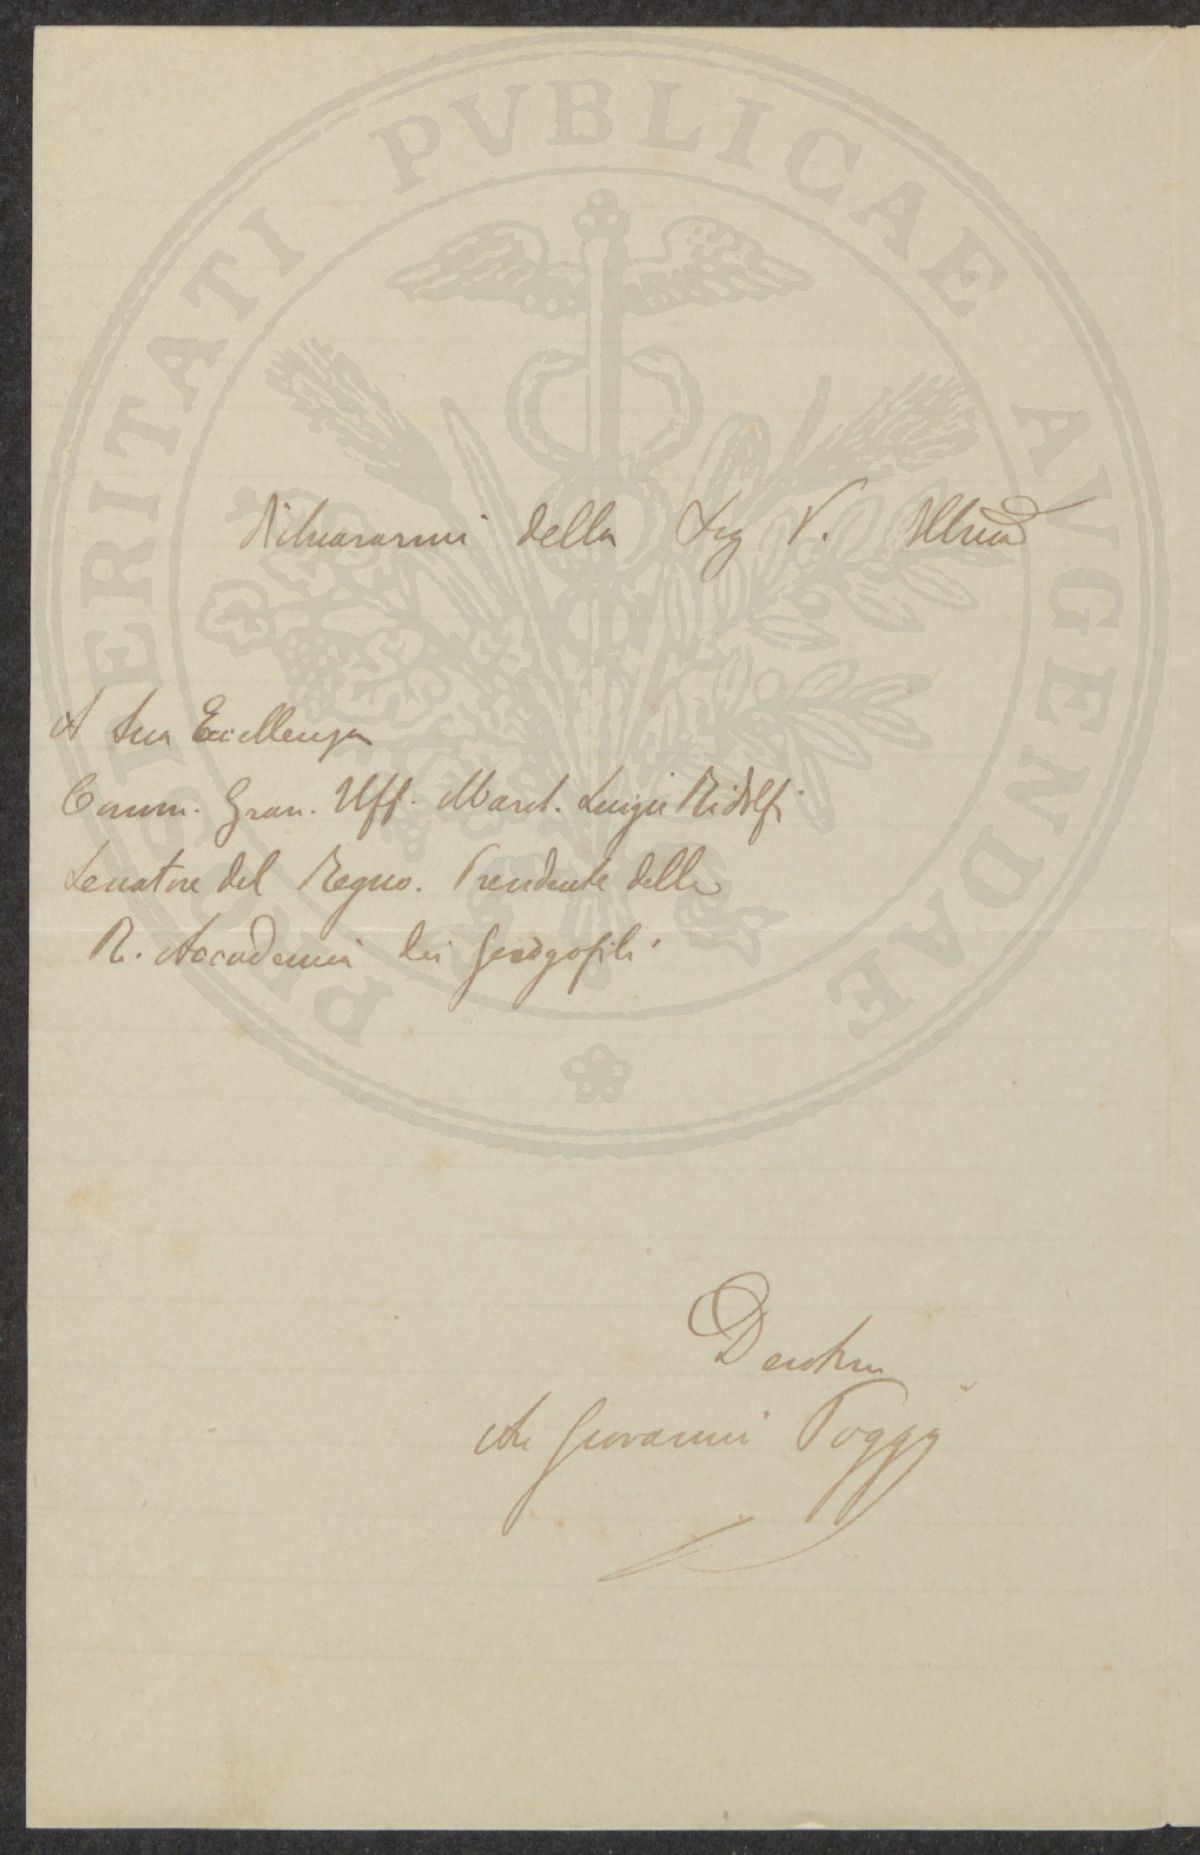 PROSPERITATI PUBLICAE AVGENDAE
Dichiararmi della Sig V. Illma
A Sua Eccellenza
Comm. Gran. Uff. March. Luigi Ridolfi
Senatore del Regno. Presidente della
R. Accademia dei Georgofili
Devotmo
Giovanni Poggi